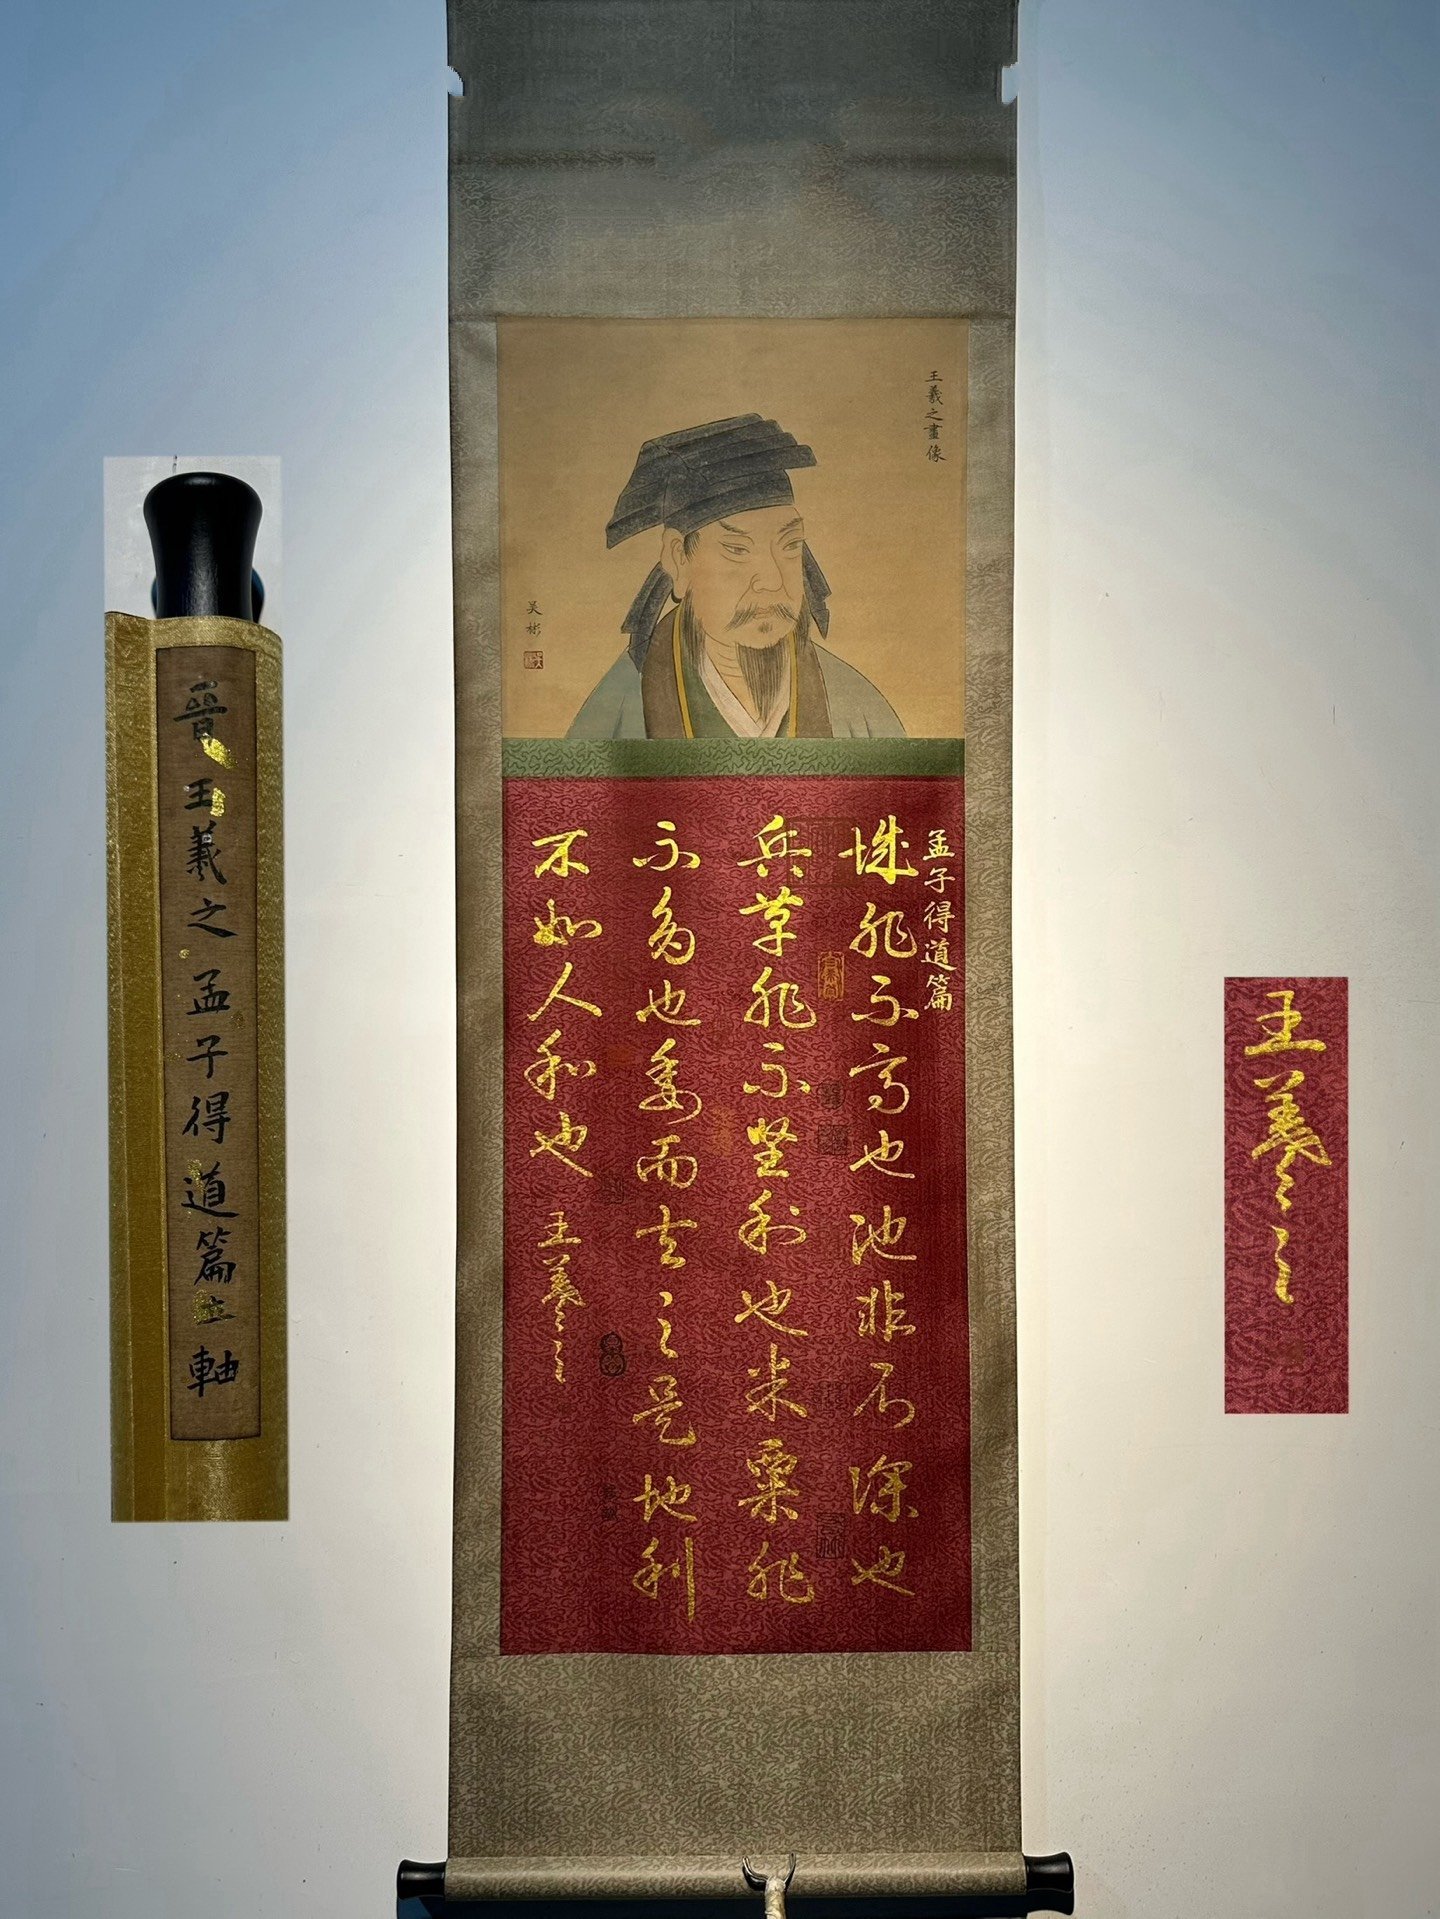 晉王羲之孟子得道篇立軸
王羲之畫像
吴彬
孟子得道篇
城非不高也池非不深也
兵革非不堅利也米粟非
不多也委而去之是地利
不如人和也
王羲之
王羲之